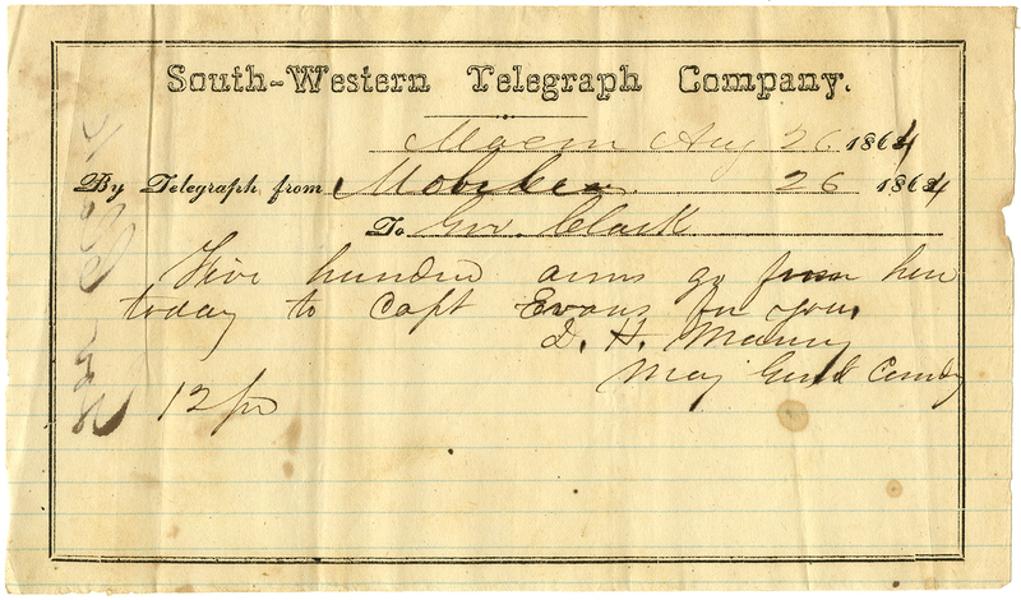 South-Western Telegraph Company.
Macon Aug 26 1864
By Telegraph from Mobile 26 1864
To Gov. Clark
Five hundred arms go from here
today to Capt Evans for you.
D. H. Maury
Maj Genl Comdg
12/pd